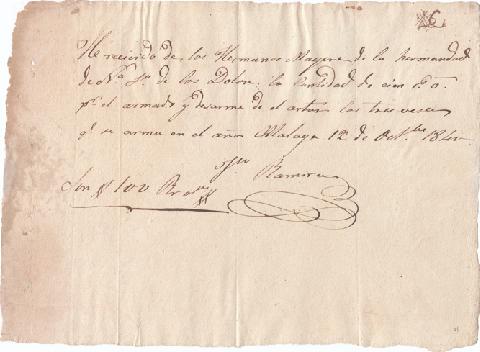 16.
He recivido de los Hermanos Mayores de la hermandad
de Nra. Sra. de los Dolores la cantidad de cien r.s v.n
pr. el armado y desarme de el altar las tres veces
qe. se arma en el año. Malaga 12 de Octe.
Ramirez
Son 100 Rs. vn.